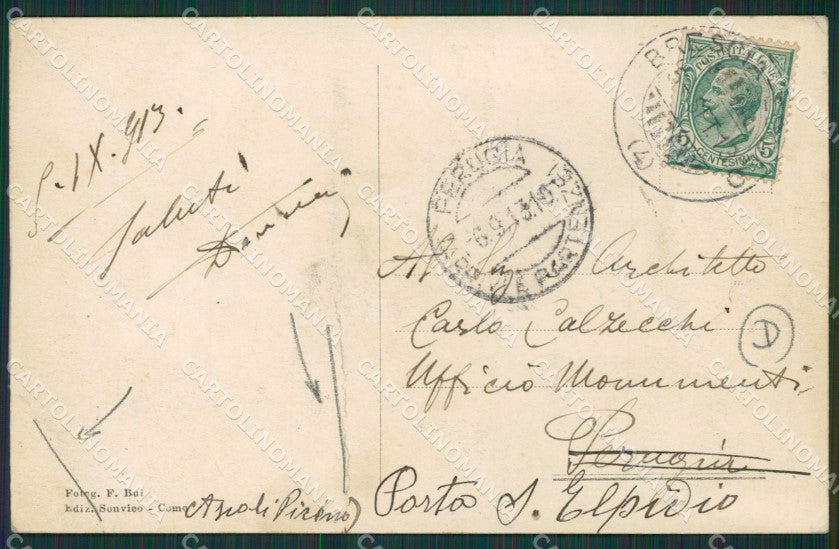 5. IX. 913.
Saluti
PERUGIA
6.9.13.16
ARRIVI E PARTENZE
BR
(4)
POSTE ITALIANE
CENTESIMI 5
Al Sig. Architetto
Carlo Calzecchi
Ufficio Monumenti
Perugia
A
Porto S. Elpidio
(Ascoli Piceno)
Fotog. F. Bui
Ediz. Sonvico - Como
CARTOLINOMANIA